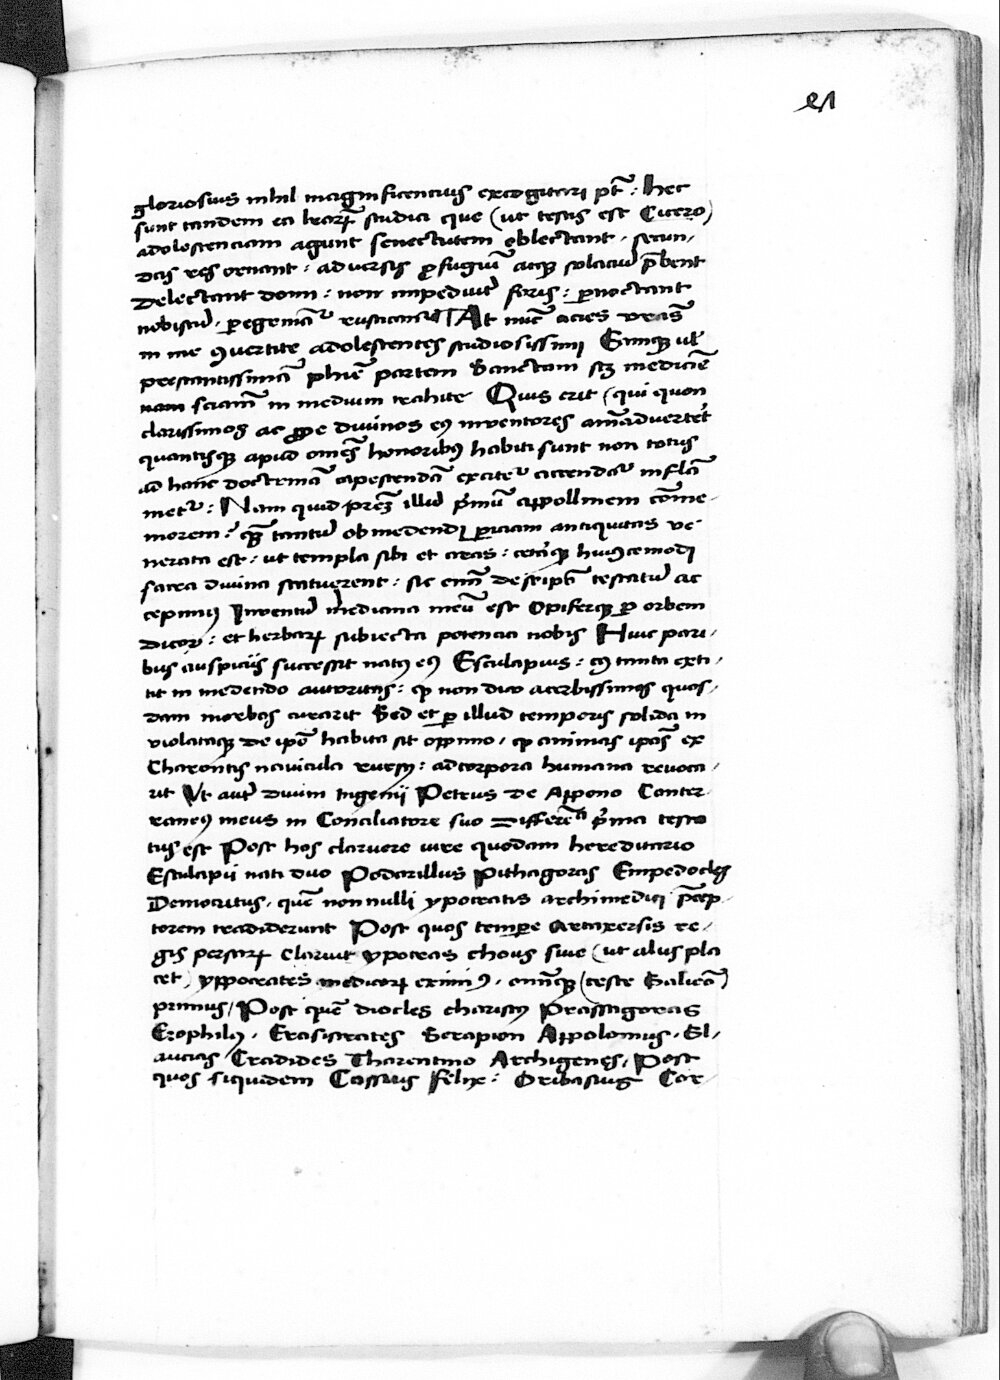 21
gloriosius nihil magnificencius excogitari pōt : Hec
sunt tandem ea beaꝝ studia que (ut testis est Cicero)
adolescenciam agunt senectutem oblectant · secun-
das res ornant : adversis ꝓfugiū atqꝫ solaciū p̄bent
delectant domi : non impediūt foris : ꝑnoctant
nobiscū · ꝑegrinātʳ rusticantʳ At nūc acies vr̄as
in me ꝯvertite adolescentes studiosissimi Eamqꝫ vł
prestantissimā phīe partem Sanctam scꝫ medicīe
nam sciam̄ in medium trahite Quis erit (qui quom
clarissimos ac ꝓpe divinos eiꝰ inventores aīmadvertet
quantisqꝫ apud omēs honoribꝰ habiti sunt non totus
ad hanc doctrinā capescendā excitetʳ accendatʳ inflā
metʳ : Nam quid p̄ter illud pͥmū appollinem cōme-
morem ? quē tantū ob medendi ꝑiciam antiquitas ve-
nerata est : ut templa sibi et aras : cetaqꝫ huiꝰcemodi
sacra divina statuerent : sic enī descriptū testatū ac
cepimus Inventū medicina meū est Opiferqꝫ ꝑ orbem
dicor : et herbaꝝ subiecta potencia nobis Huic pari-
bus auspiciis successit natꝰ eiꝰ Esculapius : cuiꝰ tanta exti-
tit in medendo autoritas : qꝫ non dico acerbissimos quos-
dam morbos curarit Sed et ꝑ illud temporis solida in
violataqꝫ de ipō habita sit oppinio · qꝫ animas ipās ex
Charontis navicula rursꝰ : ad corpora humana revoca-
rit Ut autē divini Ingenii Petrus de Appono Conter-
raneꝰ meus in Conciliatore suo Differēa pͥma testa
tus est Post hos claruere iure quodam hereditario
Esculapii nati duo Podarillus Pithagoras Empedocles
Democritus · quē nonnulli ypocratis archimedici p̄cep-
torem tradiderunt Post quos tempore Artaxersis re-
gis persaꝝ Claruit ypocras chous sive (ut aliis pla
cet) yppocrates medicoꝝ eximiꝰ · omīuqꝫ (teste Galieō)
primus / Post quē diocles charistꝰ Prassagoras
Erophilꝰ · Erasistrates Serapion Appolonius · Gl-
aucias Cradides Tharentino Archigenes · Post
quos siquidem Cassius Felix : Oribasius Cor-